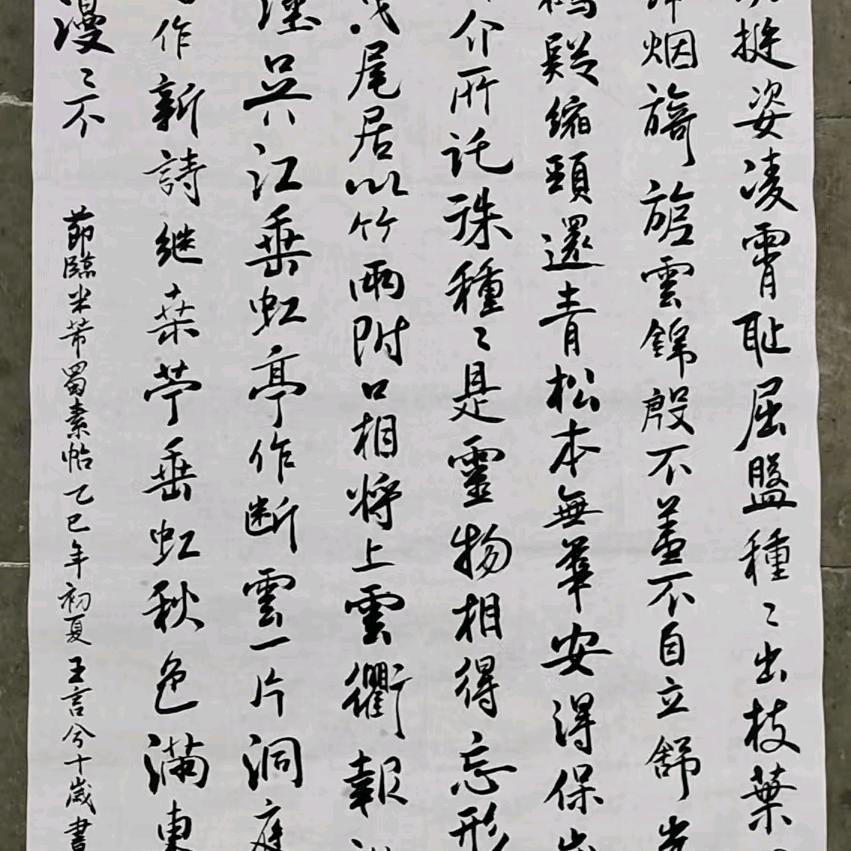 挺姿凌霄耻屈盤種〻出枝葉
烟旖旎雲錦殷不羞不自立舒
鶴疑縮頸還青松本無華安得保
介所託殊種〻是靈物相得忘形
曳尾居以竹兩附口相將上雲衢報
塗吴江垂虹亭作断雲一片洞庭
作新詩継桒苧垂虹秋色滿東
漫〻不
節臨米芾蜀素帖乙巳年初夏王言兮十歲書